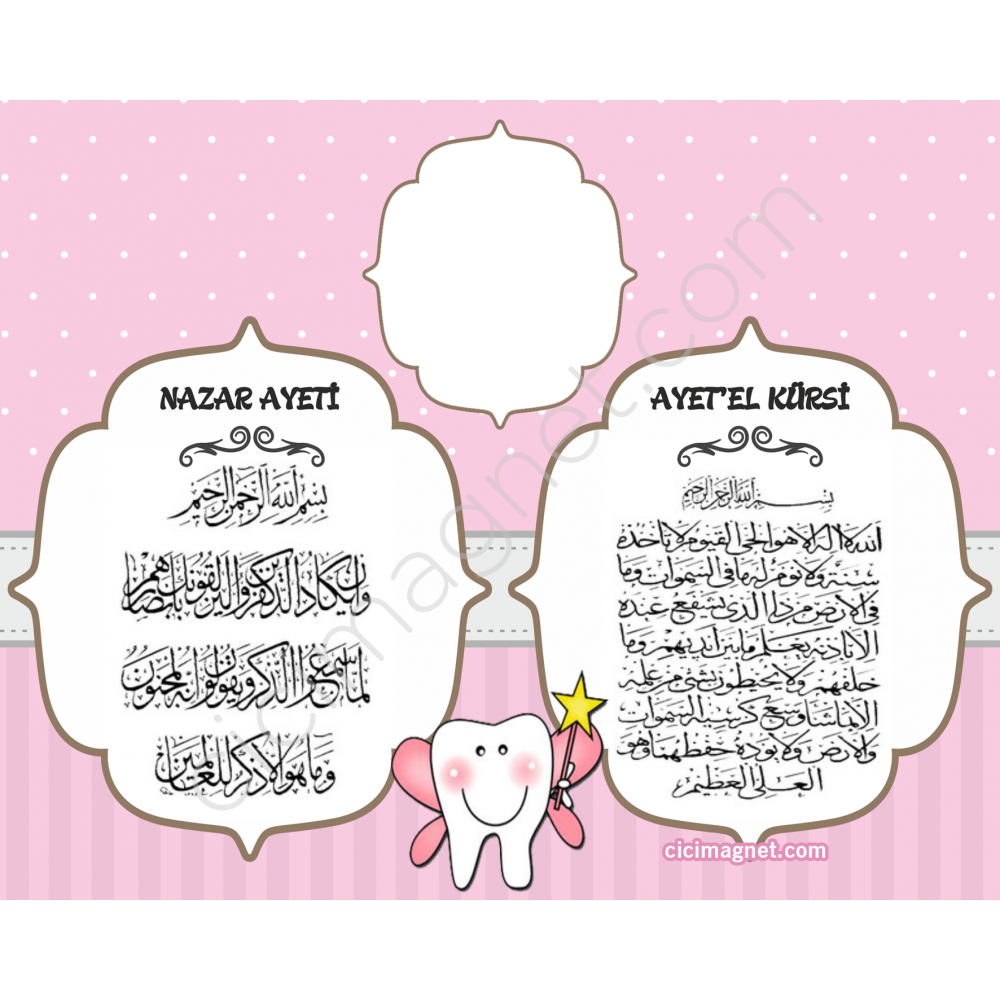 NAZAR AYETİ
بسم الله الرحمن الرحيم
وان يكاد الذين كفروا ليزلقونك بابصارهم
لما سمعوا الذكر ويقولون انه لمجنون
وما هو الا ذكر للعالمين
AYET'EL KÜRSİ
بسم الله الرحمن الرحيم
الله لا اله الا هو الحي القيوم لا تأخذه
سنة ولا نوم له ما في السموات وما
في الارض من ذا الذي يشفع عنده
الا باذنه يعلم ما بين أيديهم وما
خلفهم ولا يحيطون بشئ من علمه
الا بما شاء وسع كرسيه السموات
والارض ولا يؤده حفظهما وهو
العلي العظيم
cicimagnet.com
cicimagnet.com